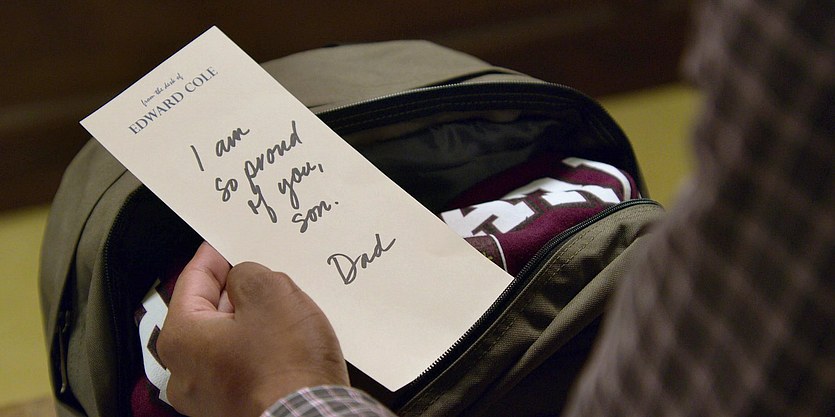 from the desk of
EDWARD COLE
I am
so proud
of you,
son.
Dad